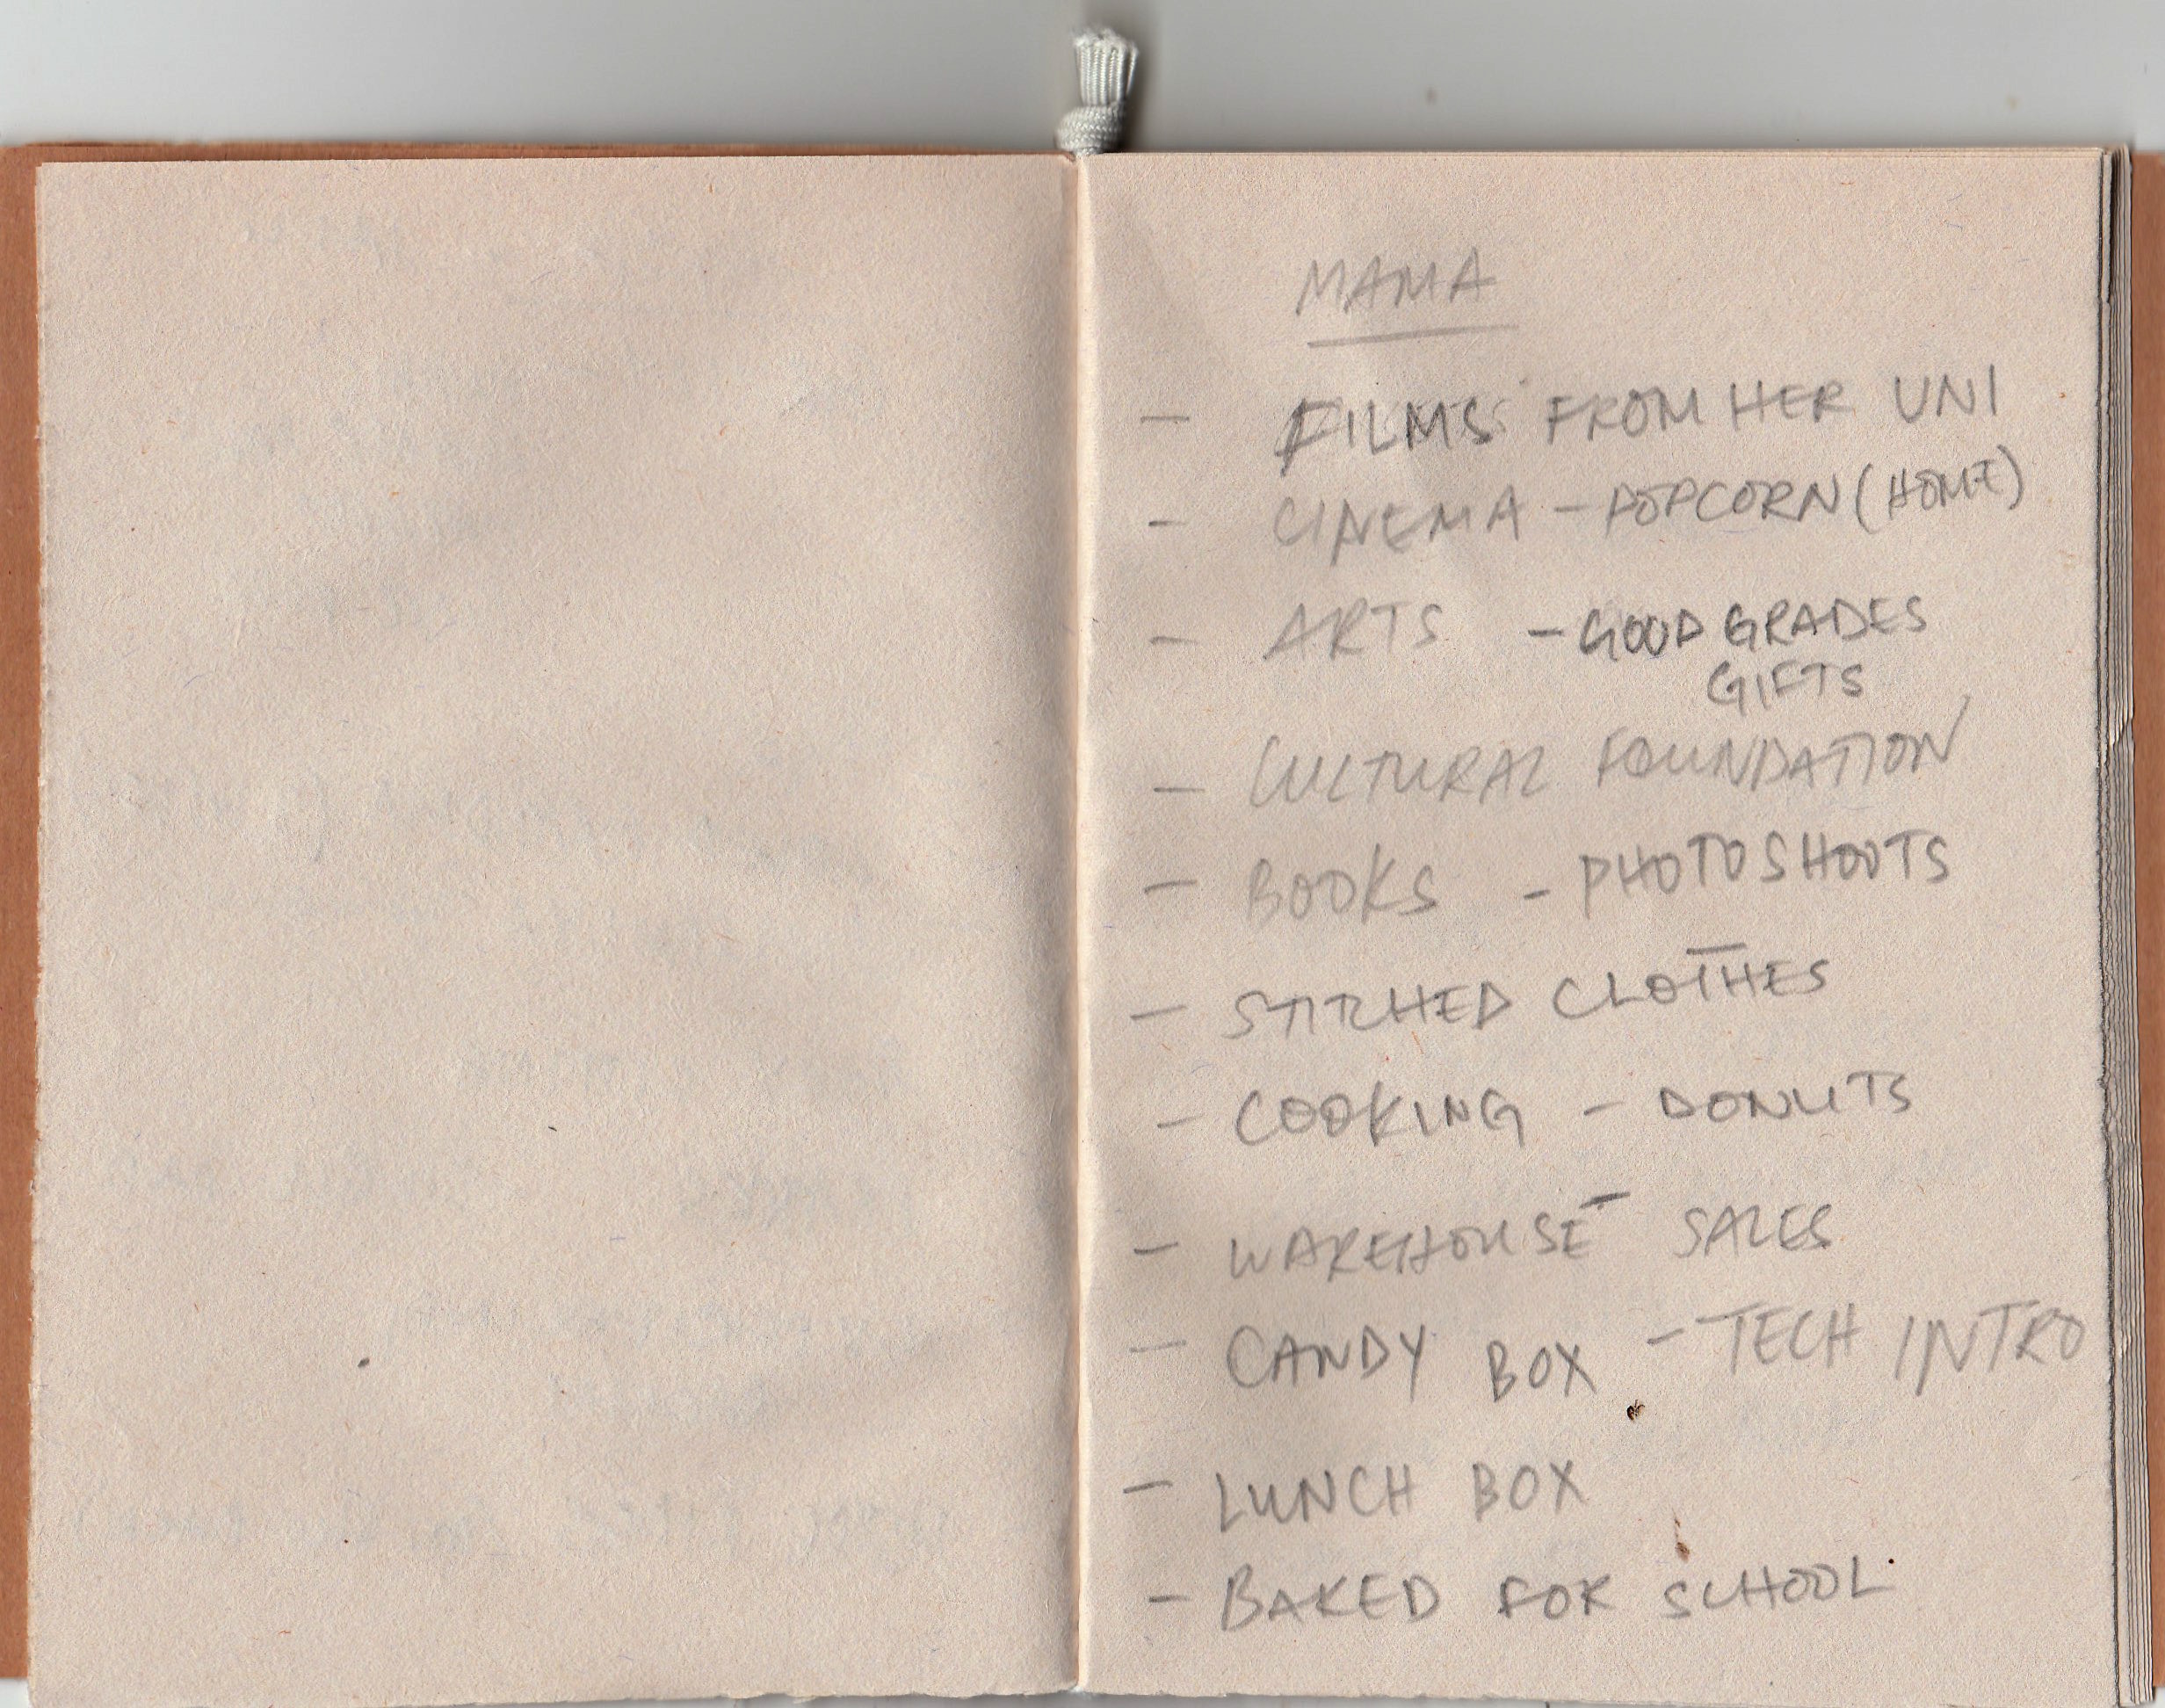 MAMA
- FILMS FROM HER UNI
- CINEMA - POPCORN (HOME)
- ARTS - GOOD GRADES
GIFTS
- CULTURAL FOUNDATION
- BOOKS - PHOTOSHOOTS
- STITCHED CLOTHES
- COOKING - DONUTS
- WAREHOUSE - SALES
- CANDY BOX - TECH INTRO
- LUNCH BOX
- BAKED FOR SCHOOL